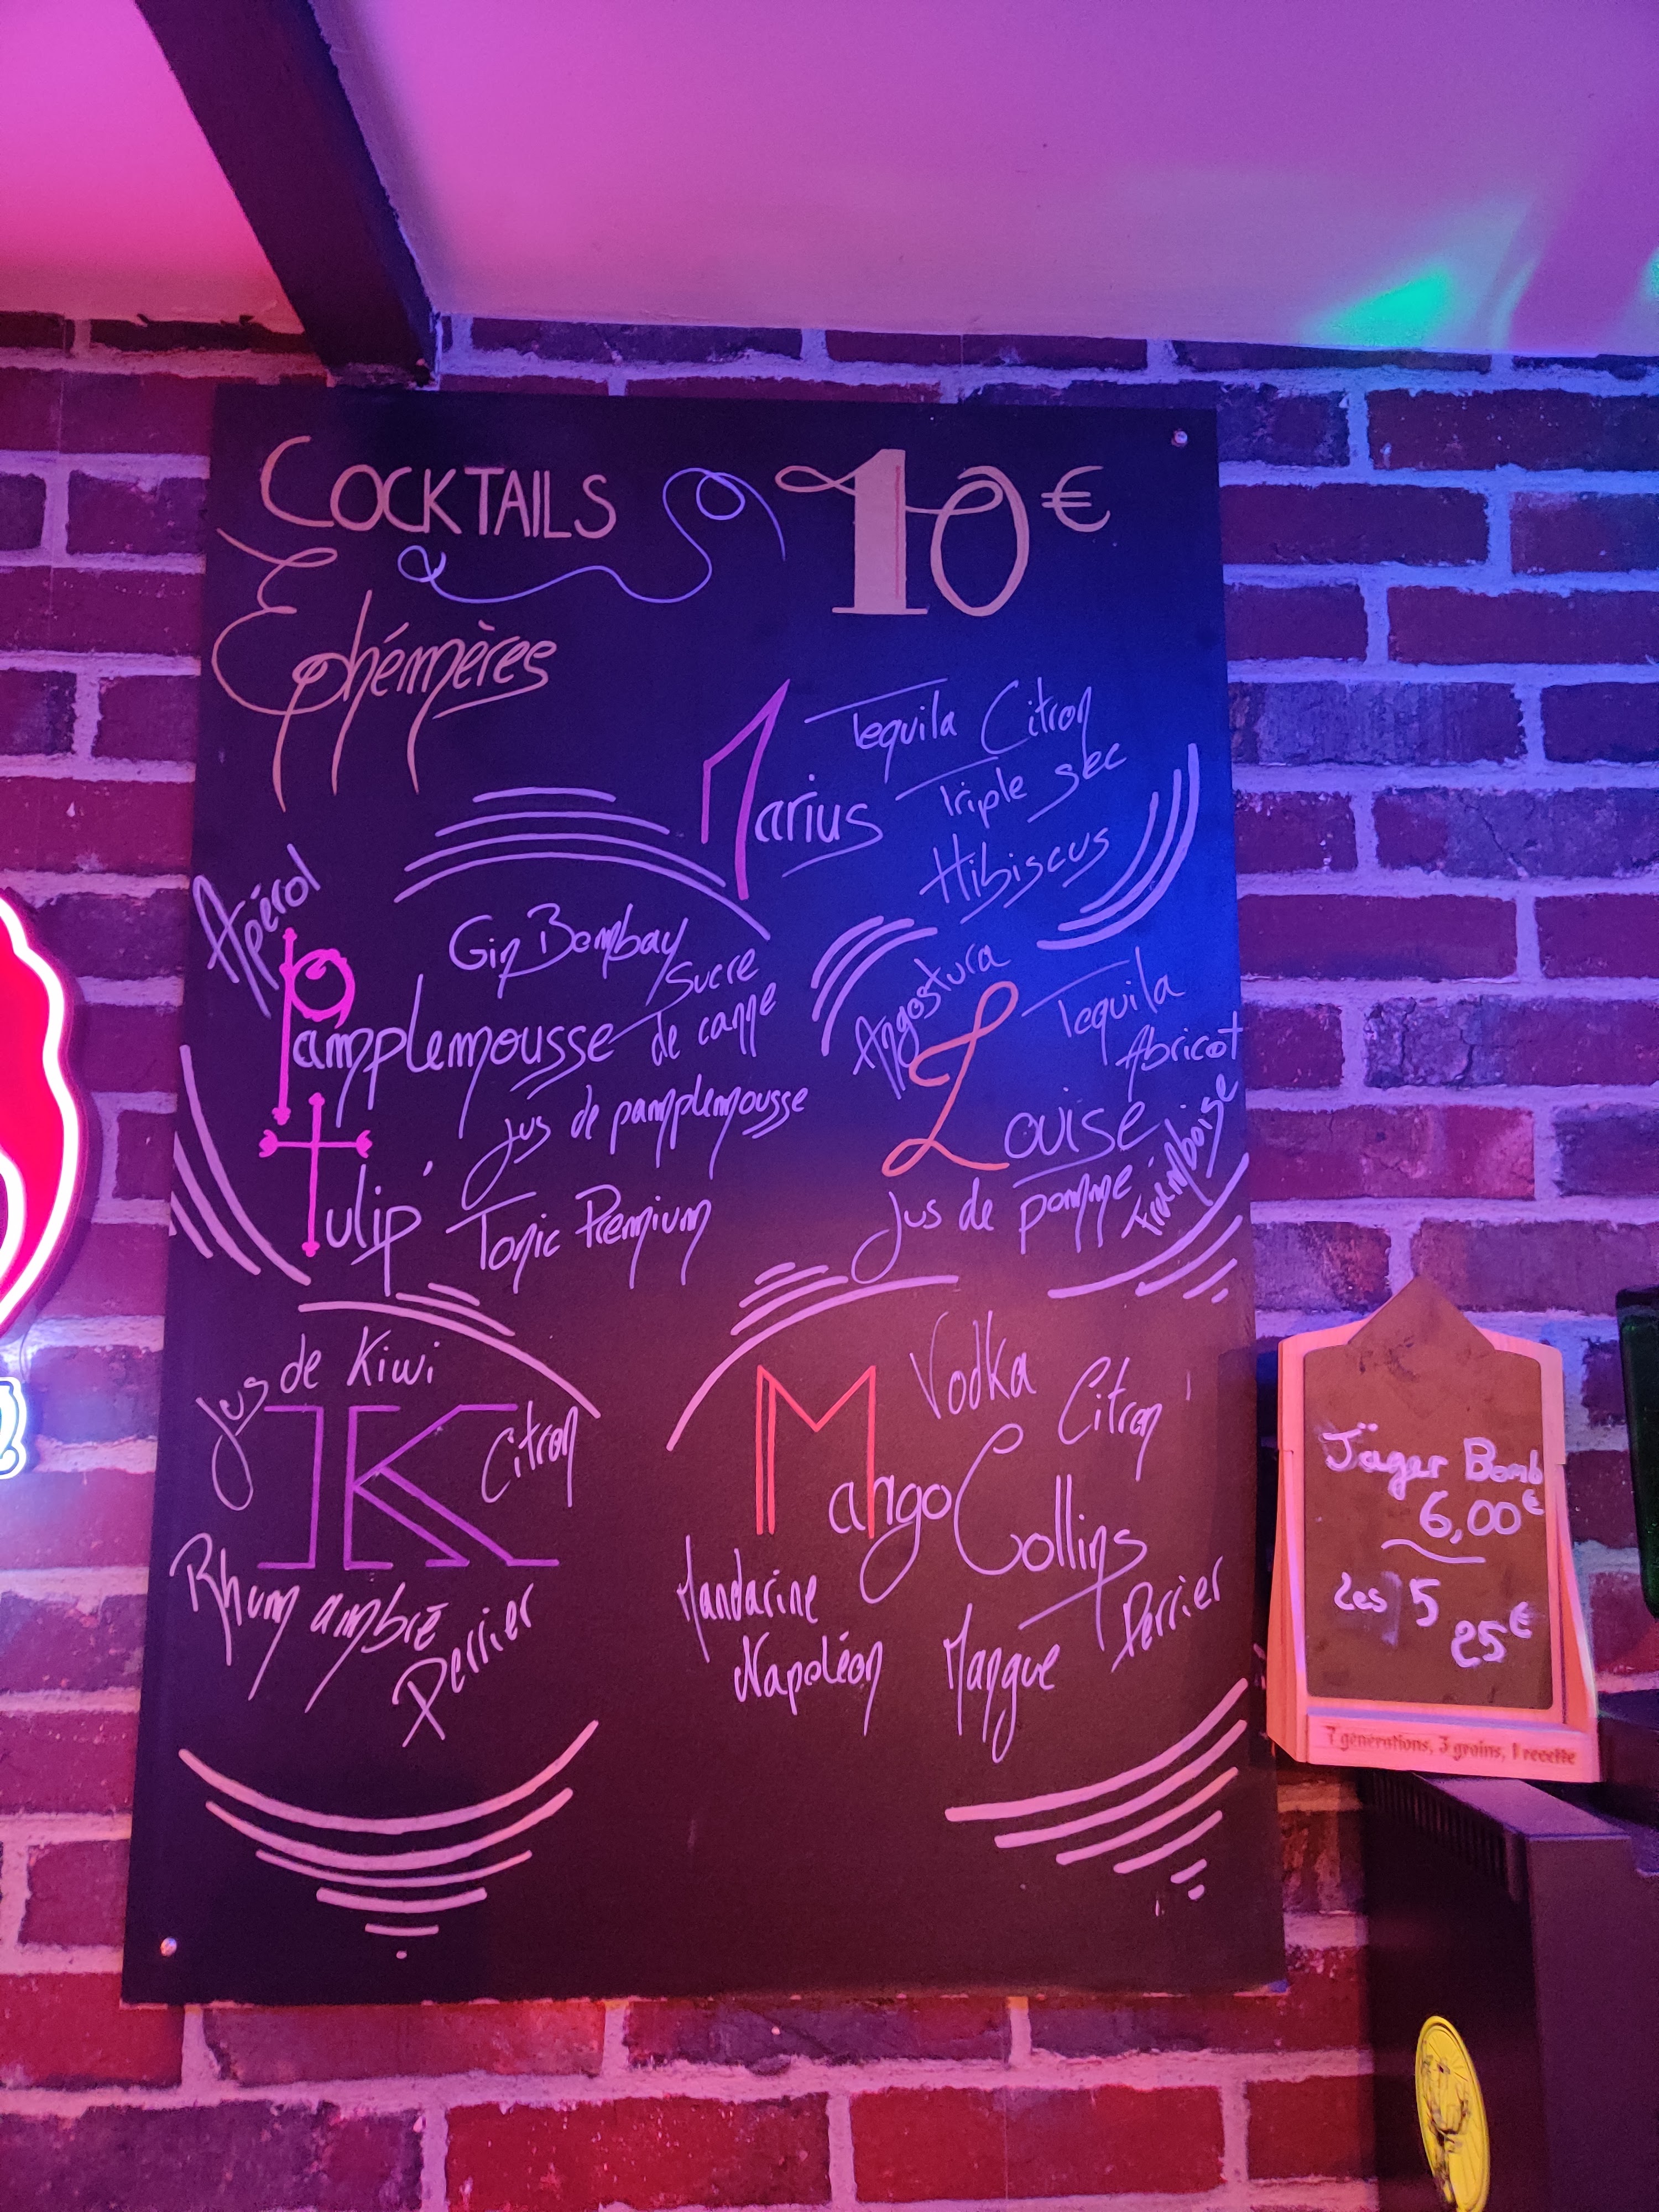 COCKTAILS 10€
Ephémères
Marius
Tequila Citron
Triple sec
Hibiscus
Apérol
Gin Bombay
Sucre
de canne
Pamplemousse
jus de pamplemousse
Tulip'
Tonic Premium
Angostura
Tequila
Abricot
Louise
Framboise
Jus de pomme
Jus de Kiwi
K
Citron
Rhum ambré
Perrier
Vodka
Citron
Mango Collins
Mandarine
Napoléon
Mangue
Perrier
Jäger Bomb
6,00€
les 5
25€
7 générations, 3 grains, 1 recette